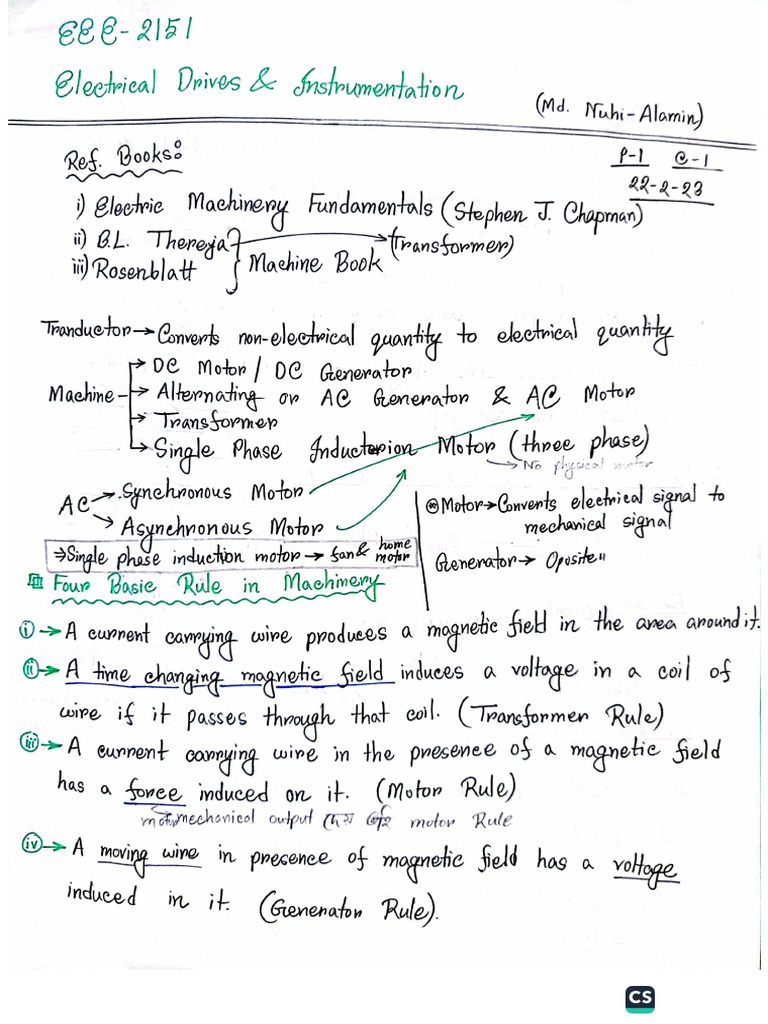 EEE-2151
Electrical Drives & Instrumentation
(Md. Nuhi-Alamin)
Ref. Books:
P-1 C-1
22-2-23
i) Electric Machinery Fundamentals (Stephen J. Chapman)
ii) B.L. Thereja (Transformer)
iii) Rosenblatt Machine Book
Tranductor → Converts non-electrical quantity to electrical quantity
Machine → DC Motor / DC Generator
→ Alternating or AC Generator & AC Motor
→ Transformer
→ Single Phase Induction Motor (three phase)
→ No physical motor
AC → Synchronous Motor
→ Asynchronous Motor
⇒ Single phase induction motor → fan & home motor
Motor → Converts electrical signal to
mechanical signal
Generator → Oposite "
Four Basic Rule in Machinery
i → A current carrying wire produces a magnetic field in the area around it.
ii → A time changing magnetic field induces a voltage in a coil of
wire if it passes through that coil. (Transformer Rule)
iii → A current carrying wire in the presence of a magnetic field
has a force induced on it. (Motor Rule)
mechanical output দেয় তাই motor Rule
iv → A moving wire in presence of magnetic field has a voltage
induced in it. (Generator Rule).
CS